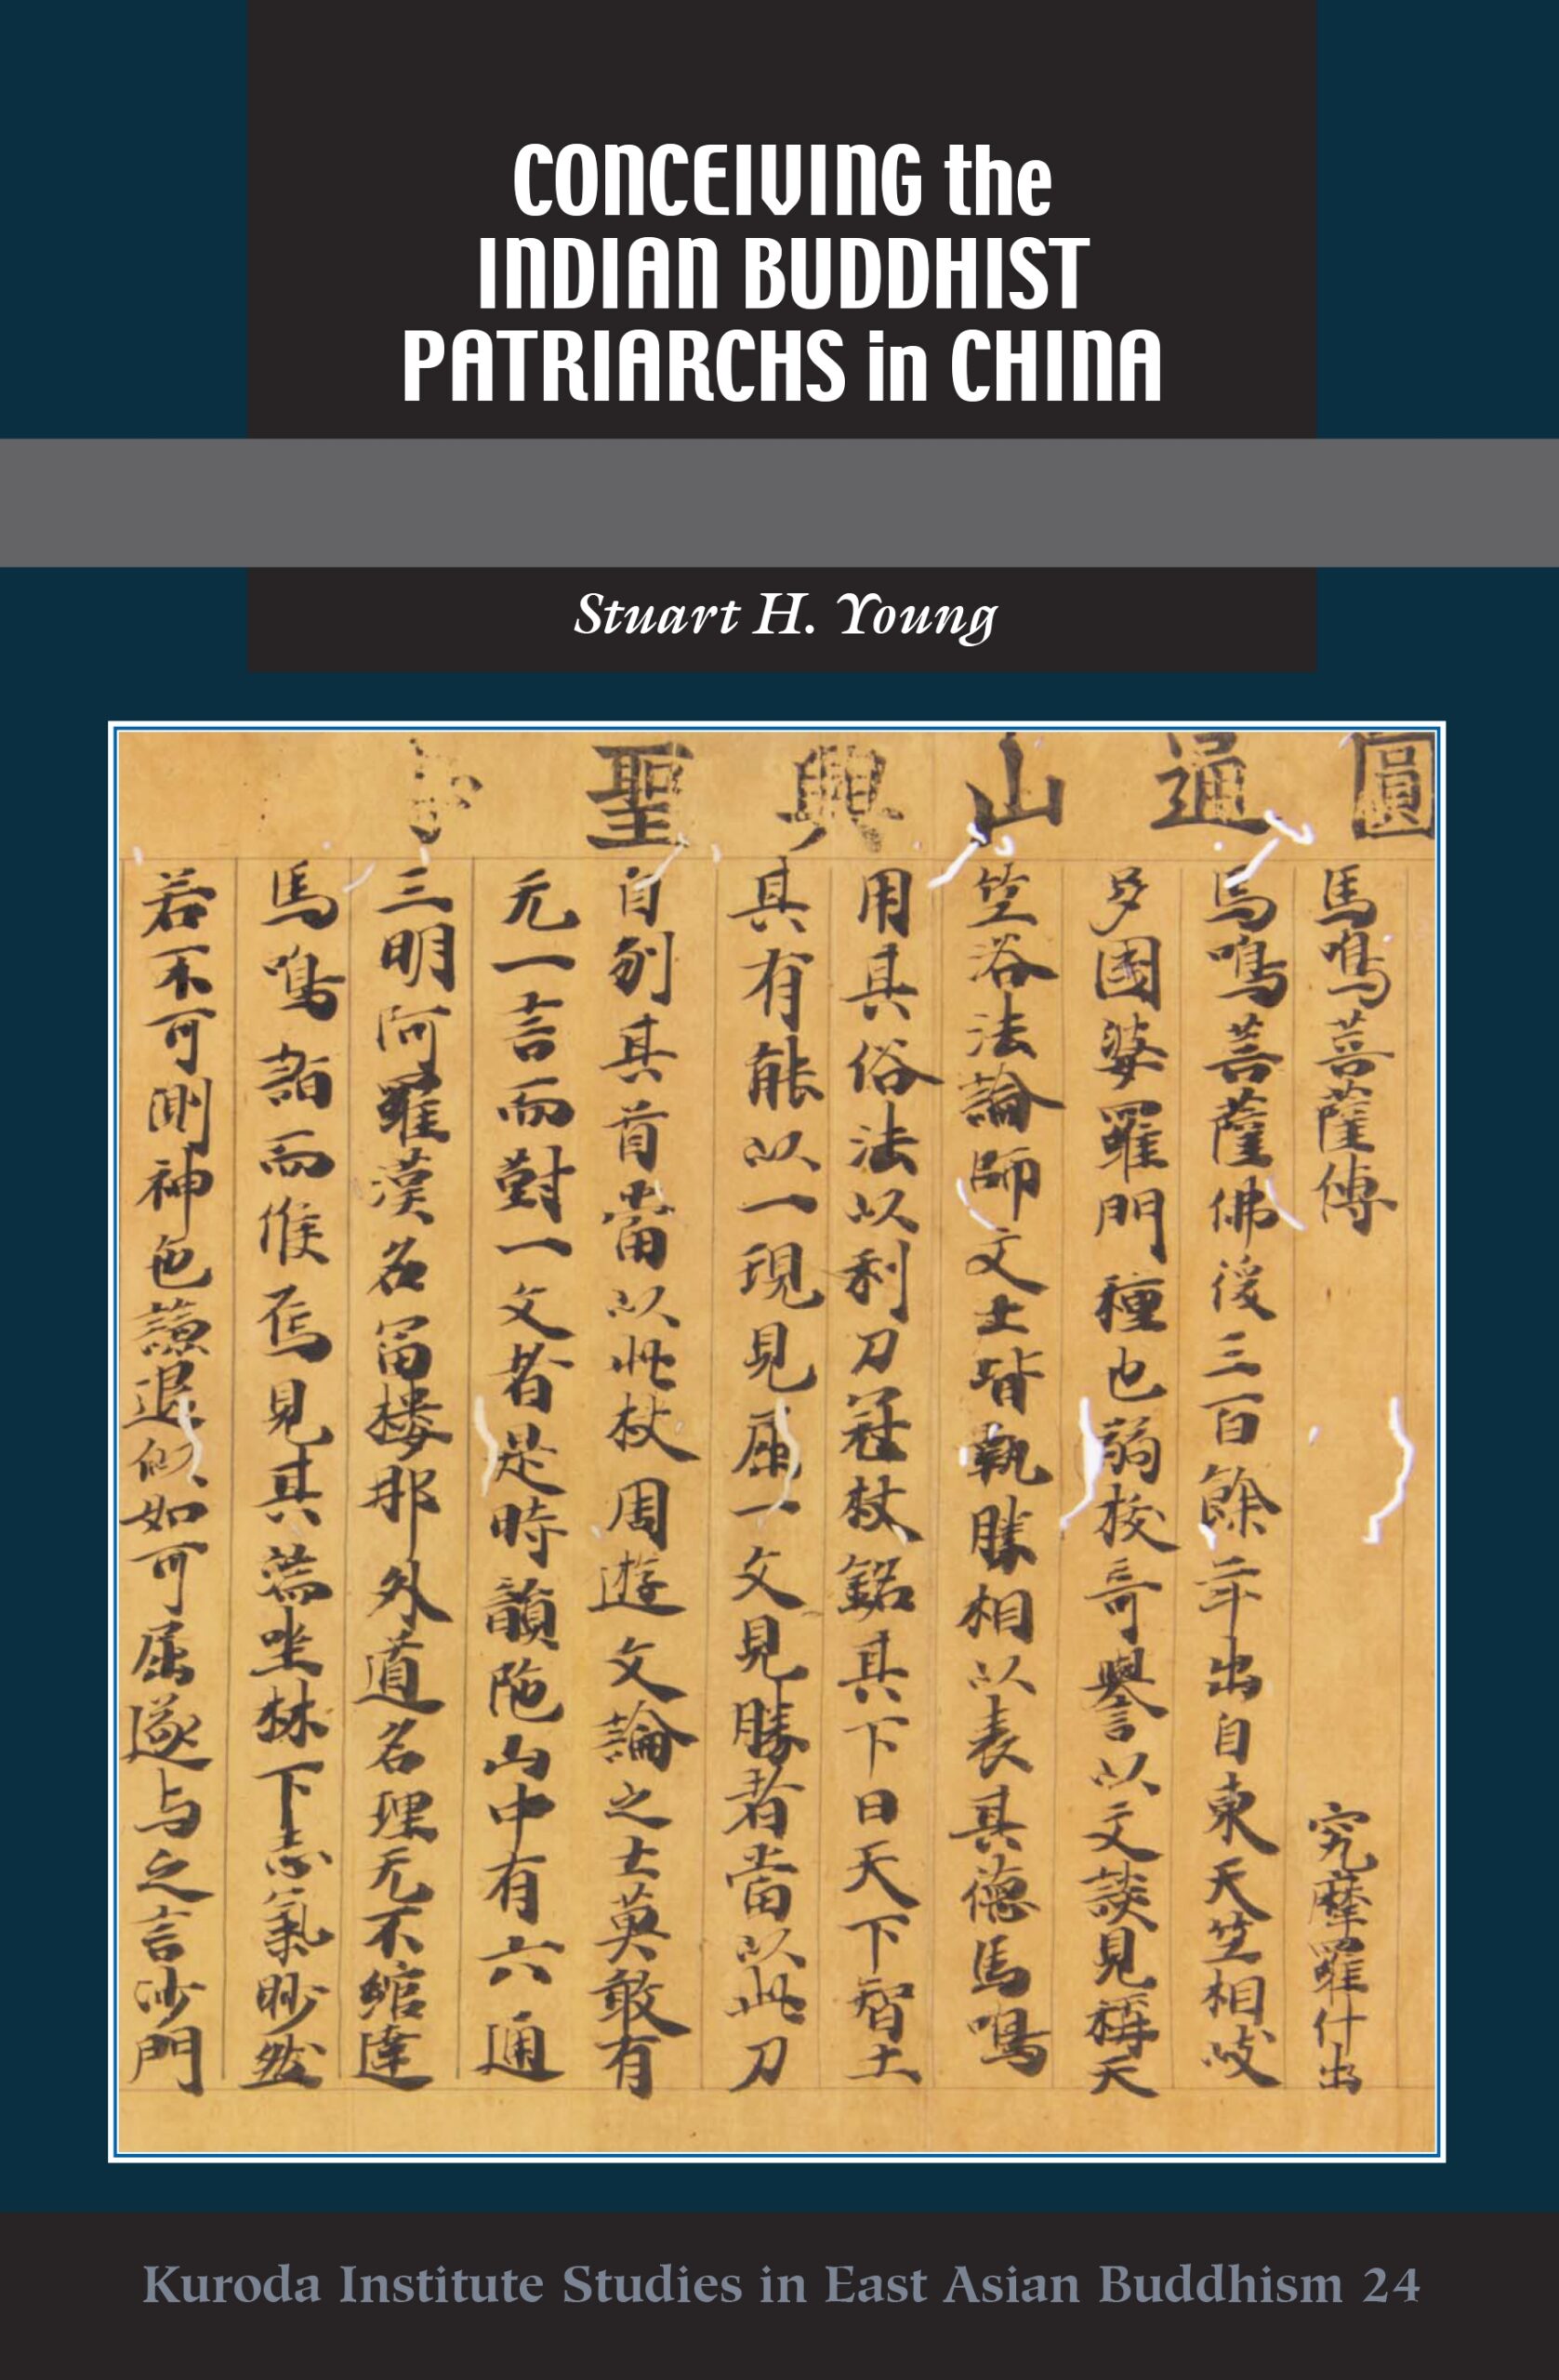 CONCEIVING the
INDIAN BUDDHIST
PATRIARCHS in CHINA
Stuart H. Young
圓通山興聖
馬鳴菩薩傳 究摩羅什出
馬鳴菩薩佛後三百餘年出自東天竺相岐
多國婆羅門種也弱桉哥譽以文談見稱天
竺浴法論師文士皆執勝相以表其德馬鳴
用其俗法以利刀冠杖銘其下曰天下智士
其有能以一現見屈一文見勝者當以此刀
自刎其首當以此杖周遊文論之士莫敢有
无一言而對一文者是時韻陁山中有六通
三明阿羅漢名富樓那外道名理无不綰達
馬鳴詣而候焉見其端坐林下志氣眇然
若不可測神色謙退似如可屈遂与之言沙門
Kuroda Institute Studies in East Asian Buddhism 24